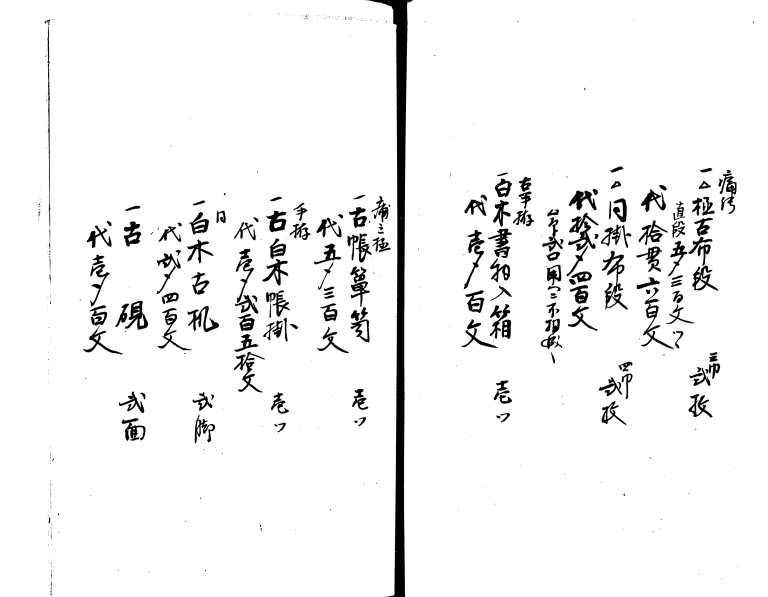 痛所
一△極古布段 三巾 弐枚
直段五〆三百文ツヽ
代拾貫六百文
一△同掛布段 四巾 弐枚
代拾弐〆四百文
古手拵
一白木書物入箱 壱ツ
代壱〆百文
一古帳簞笥 壱ツ
代五〆三百文
手拵
一古白木帳掛 壱ツ
代壱〆弐百五拾文
同
一白木古机 弐脚
代弐〆四百文
一古硯 弐面
代壱〆百文